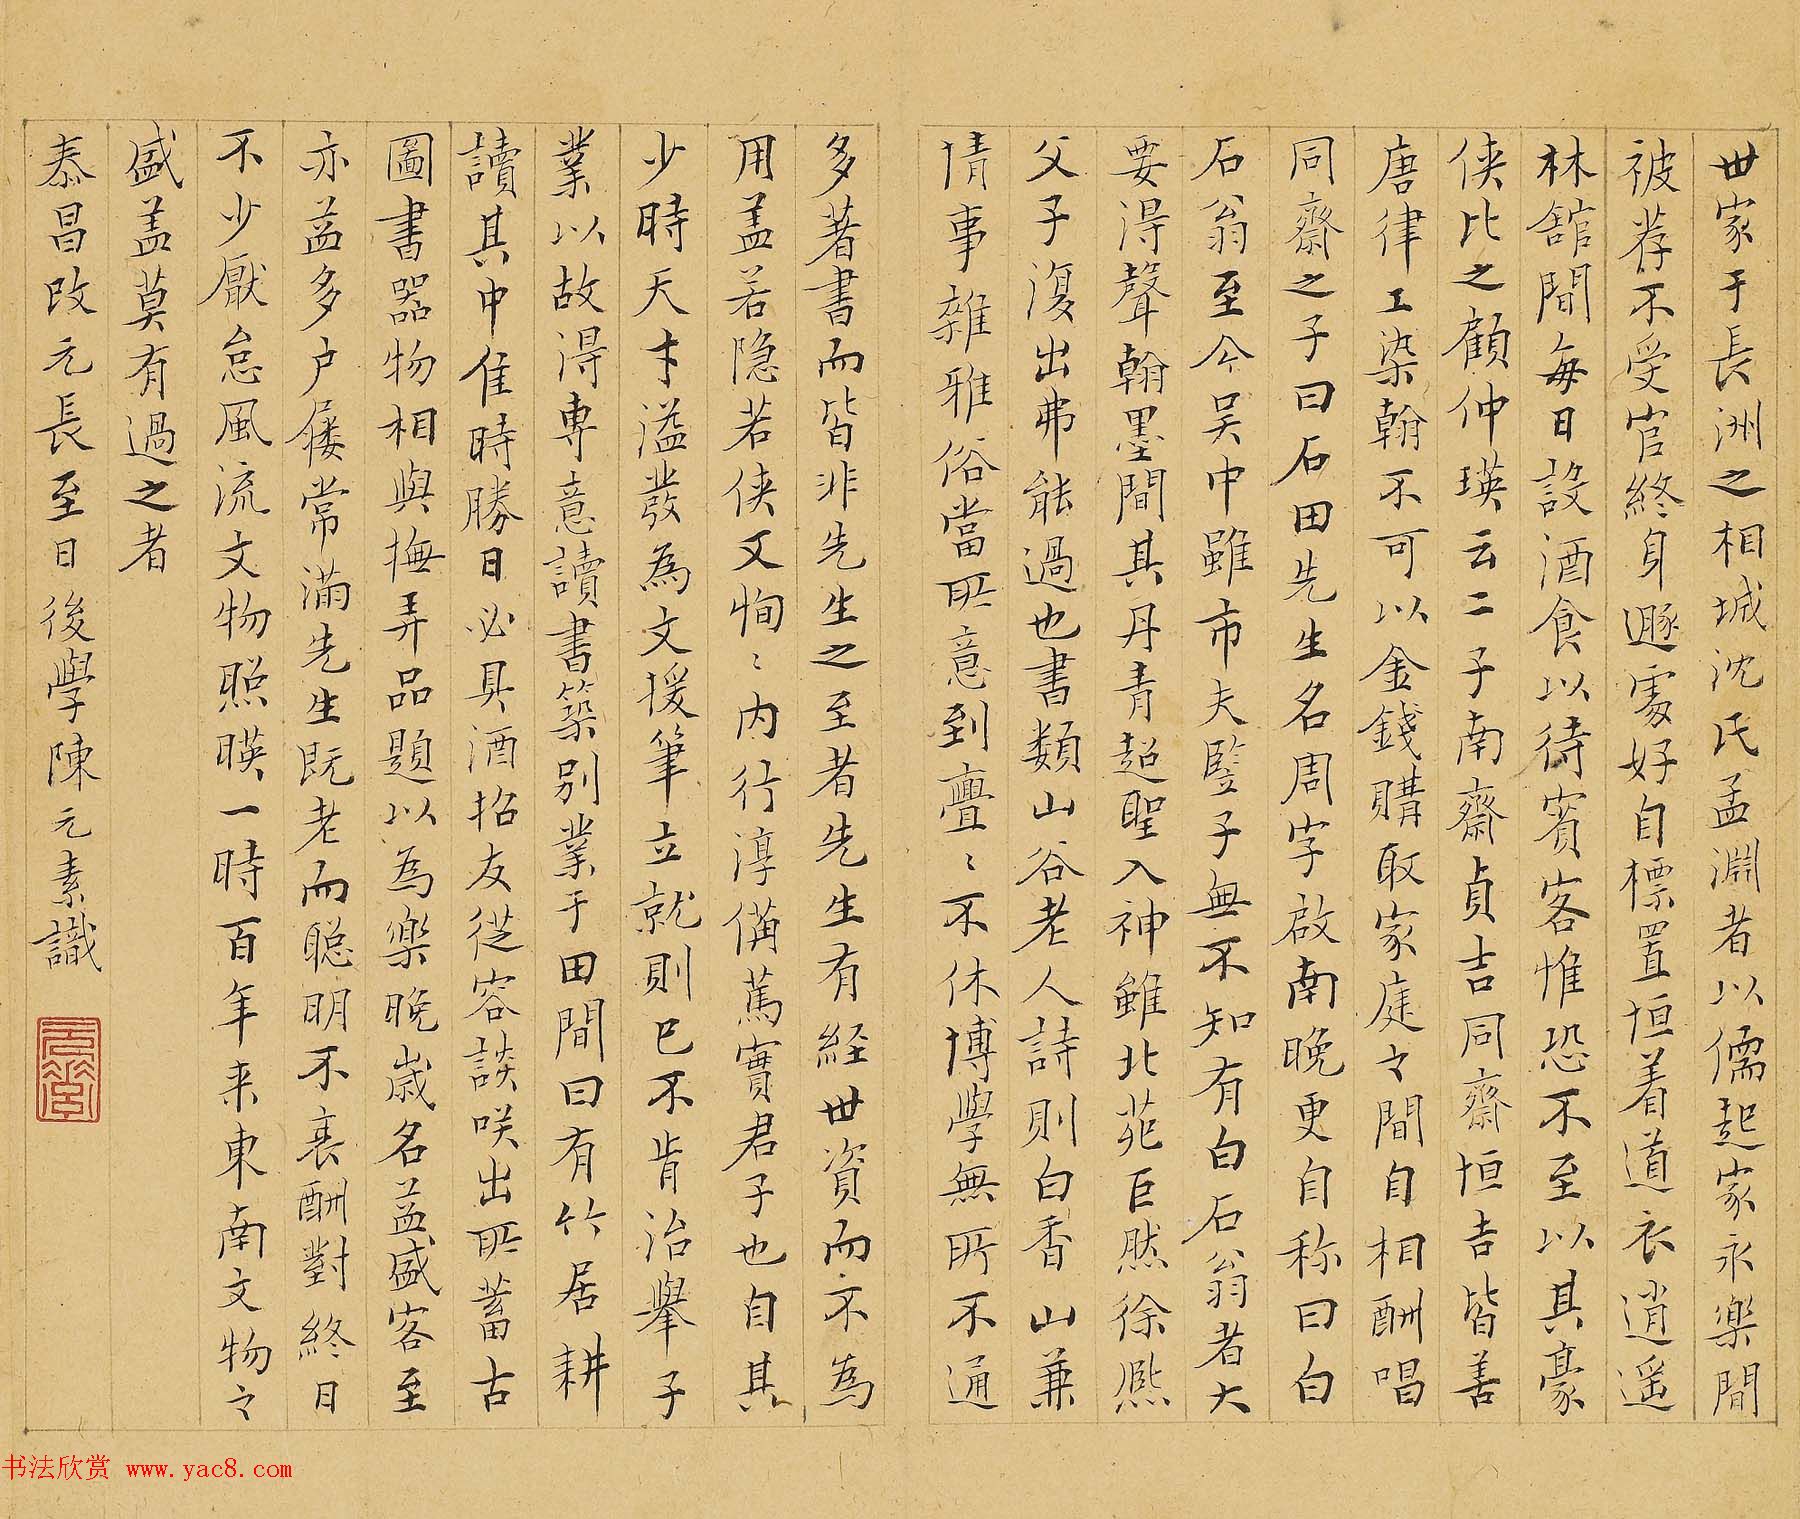 世家于長洲之相城沈氏孟淵者以儒起家永樂間
被荐不受官終身遯處好自標置恒着道衣逍遥
林舘間每日設酒食以待賓客惟恐不至以其豪
侠比之顧仲瑛云二子南齋貞吉同齋恒吉皆善
唐律工染翰不可以金錢購取家庭之間自相酬唱
同齋之子曰石田先生名周字啟南晚更自称曰白
石翁至今吴中雖市夫豎子無不知有白石翁者大
要淂聲翰墨間其丹青超聖入神雖北苑巨然徐熈
父子復出弗能過也書類山谷老人詩則白香山兼
情事雜雅俗當所意到亹〻不休博學無所不通
多著書而皆非先生之至者先生有経世資而不為
用盖若隐若侠又恂〻内行淳備篤實君子也自其
少時天才溢發為文援筆立就則已不肯治舉子
業以故淂専意讀書築别業于田間曰有竹居耕
讀其中隹時勝日必具酒招友從容談咲出所蓄古
圖書器物相與撫弄品題以為樂晚歲名益盛客至
亦益多户屨常滿先生既老而聪明不衰酬對終日
不少厭怠風流文物照暎一時百年来東南文物之
盛盖莫有過之者
泰昌改元長至日後學陳元素識
书法欣赏 www.yac8.com